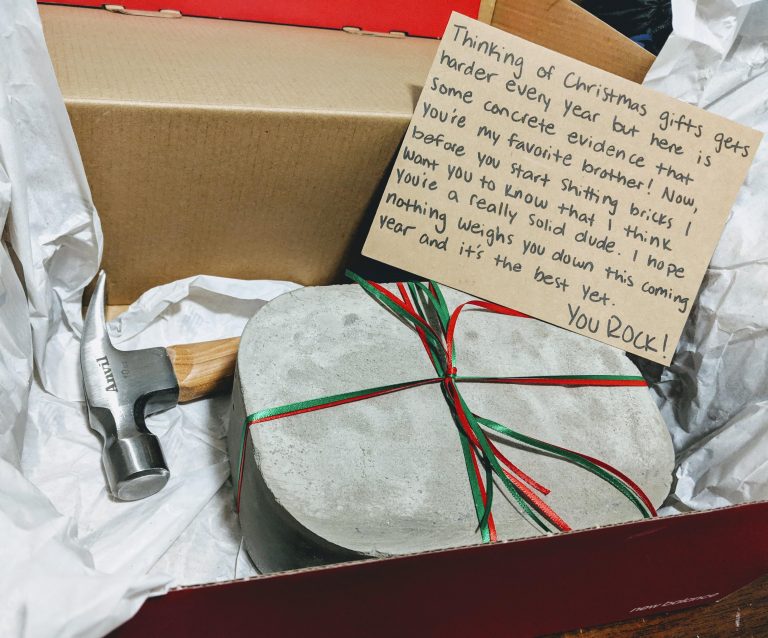 Thinking of Christmas gifts gets
harder every year but here is
some concrete evidence that
you're my favorite brother! Now,
before you start shitting bricks I
want you to know that I think
you're a really solid dude. I hope
nothing weighs you down this coming
year and it's the best yet.
YOU ROCK!
Anvil
new balance